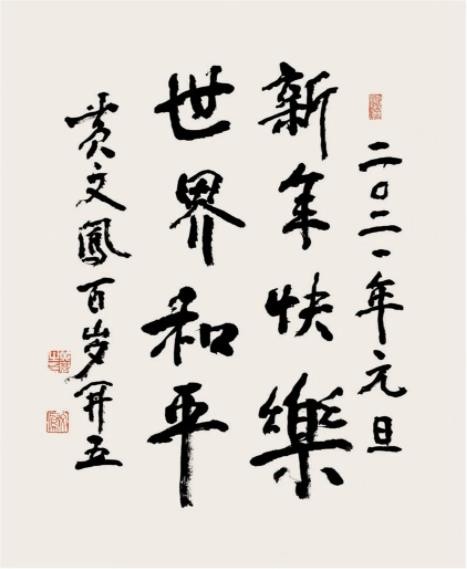 二〇二一年元旦
新年快樂
世界和平
文鳳百岁開五